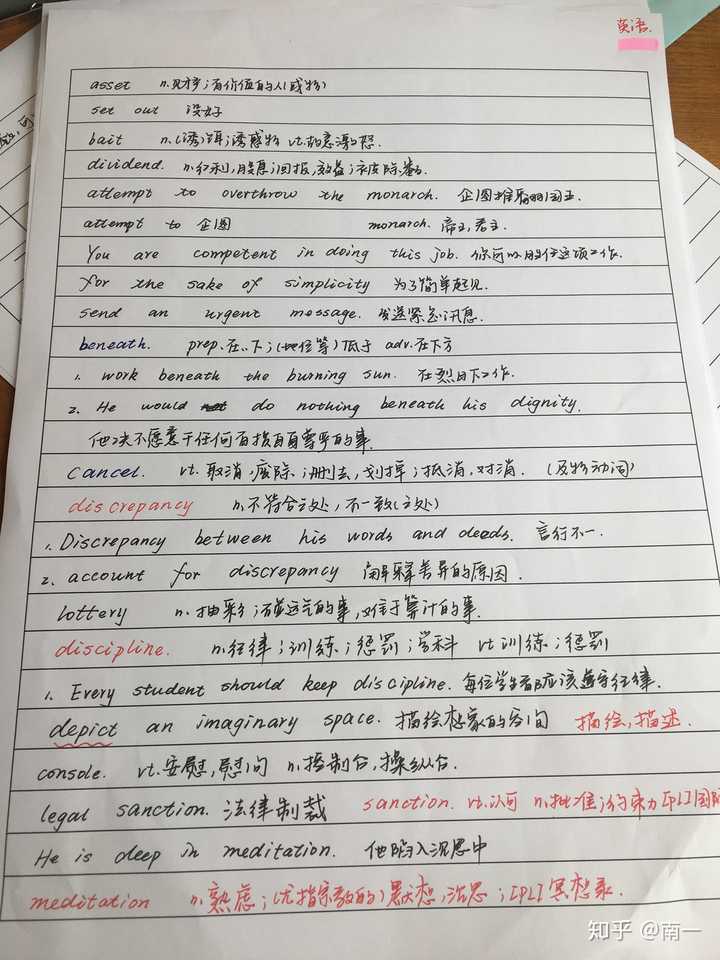 英语.
asset n.财产;有价值的人(或物)
set out 设好
bait n.(诱)饵;诱惑物 vt.故意激怒.
dividend. n.红利,股息;回报,效益;被除数.
attempt to overthrow the monarch. 企图推翻国王.
attempt to 企图 monarch. 帝王,君主.
You are competent in doing this job. 你可以胜任这项工作.
for the sake of simplicity 为了简单起见.
send an urgent message. 发送紧急讯息.
beneath. prep.在..下;(地位等)低于 adv.在下方
1. work beneath the burning sun. 在烈日下工作.
2. He would do nothing beneath his dignity.
他决不愿意干任何有损自尊的事.
cancel. vt.取消,废除;删去,划掉;抵消,对消. (及物动词)
discrepancy n.不符合之处,不一致(之处)
1. Discrepancy between his words and deeds. 言行不一.
2. account for discrepancy 解释差异的原因.
lottery n.抽彩;碰运气的事,难于算计的事.
discipline. n.纪律;训练;惩罚;学科 vt.训练;惩罚
1. Every student should keep discipline. 每位学生都应该遵守纪律.
depict an imaginary space. 描绘想象的空间 描绘,描述.
console. vt.安慰,慰问 n.控制台,操纵台.
legal sanction. 法律制裁 sanction. vt.认可 n.批准;约束力[pl]国际
He is deep in meditation. 他陷入沉思中
meditation n.熟虑;(尤指宗教的)默想,沉思;[pl]冥想录.
知乎 @南一